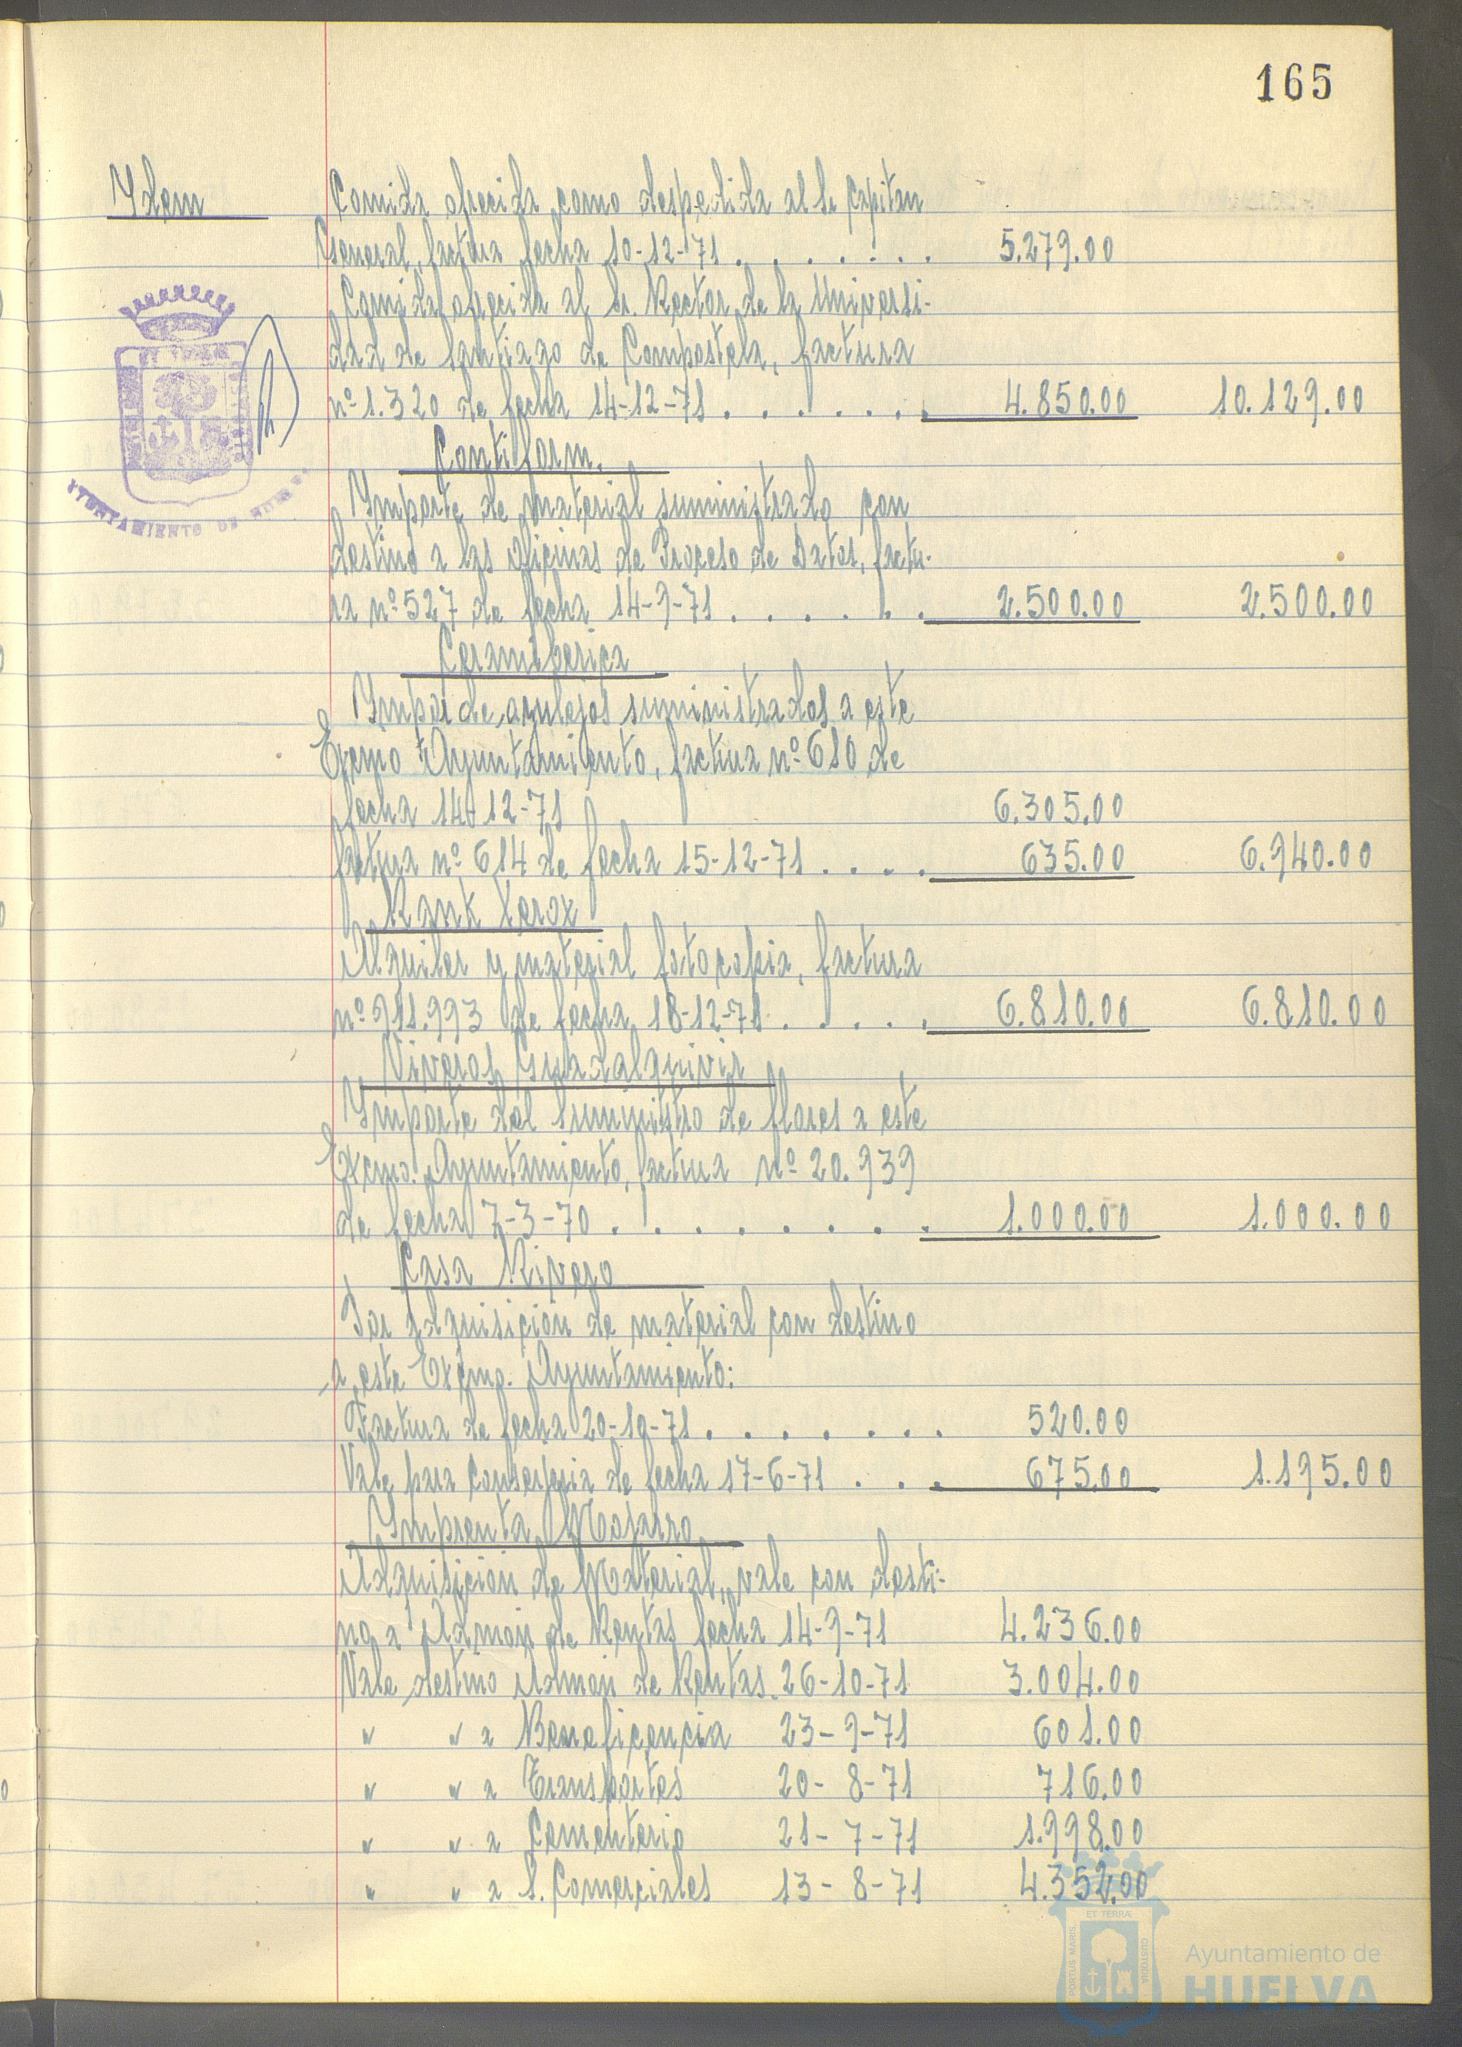 165
Ydem Comida ofrecida como despedida al Sr Capitan
General, factura fecha 10-12-71 . . . . . . . 5.279.00
Comida ofrecida al Sr. Rector de la Universi-
dad de Santiago de Compostela, factura
nº 1.320 de fecha 14-12-71 . . . . . . . 4.850.00 10.129.00
AYUNTAMIENTO DE HUELVA
Contiform.
Ymporte de material suministrado con
destino a las Oficinas de Proceso de Datos, factu-
ra nº 527 de fecha 14-9-71 . . . . . . 2.500.00 2.500.00
Ceramiberica
Ympor de azulejos suministrados a este
Excmo Ayuntamiento, factura nº 610 de
fecha 14-12-71 6.305.00
factura nº 614 de fecha 15-12-71 . . . . 635.00 6.940.00
Rank Xerox
Alquiler y material fotocopia, factura
nº 911.993 de fecha 18-12-71 . . . . . 6.810.00 6.810.00
Viveros Guadalquivir
Ymporte del suministro de flores a este
Excmo. Ayuntamiento, factura nº 20.939
de fecha 7-3-70 . . . . . . . . 1.000.00 1.000.00
Casa Rivero
Por adquisición de material con destino
a este Excmo. Ayuntamiento:
Factura de fecha 20-10-71 . . . . . . . 520.00
Vale para Conserjeria de fecha 17-6-71 . . . 675.00 1.195.00
Ymprenta Mojarro
Adquisición de Material, vale con desti-
no a Admon de Rentas fecha 14-9-71 4.236.00
Vale destino Admon de Rentas. 26-10-71 3.004.00
" " a Beneficencia 23-9-71 601.00
" " a Transportes 20-8-71 716.00
" " a Cementerio 21-7-71 1.998.00
" " a S. Comerciales 13-8-71 4.352.00
PORTUS MARIS ET TERRAE CUSTODIA
Ayuntamiento de
HUELVA